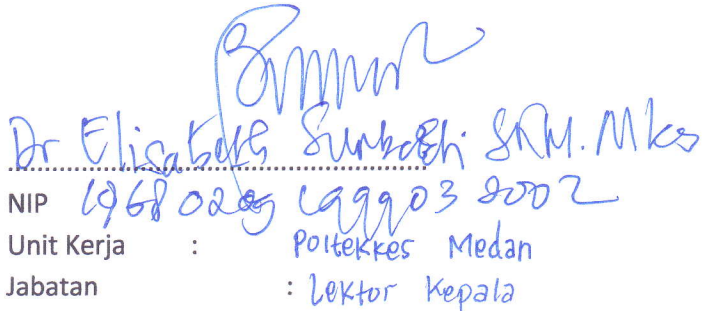 Dr Elisabeth Surbakti SKM. Mkes
NIP 19680209 199903 2002
Unit Kerja : Poltekkes Medan
Jabatan : Lektor Kepala